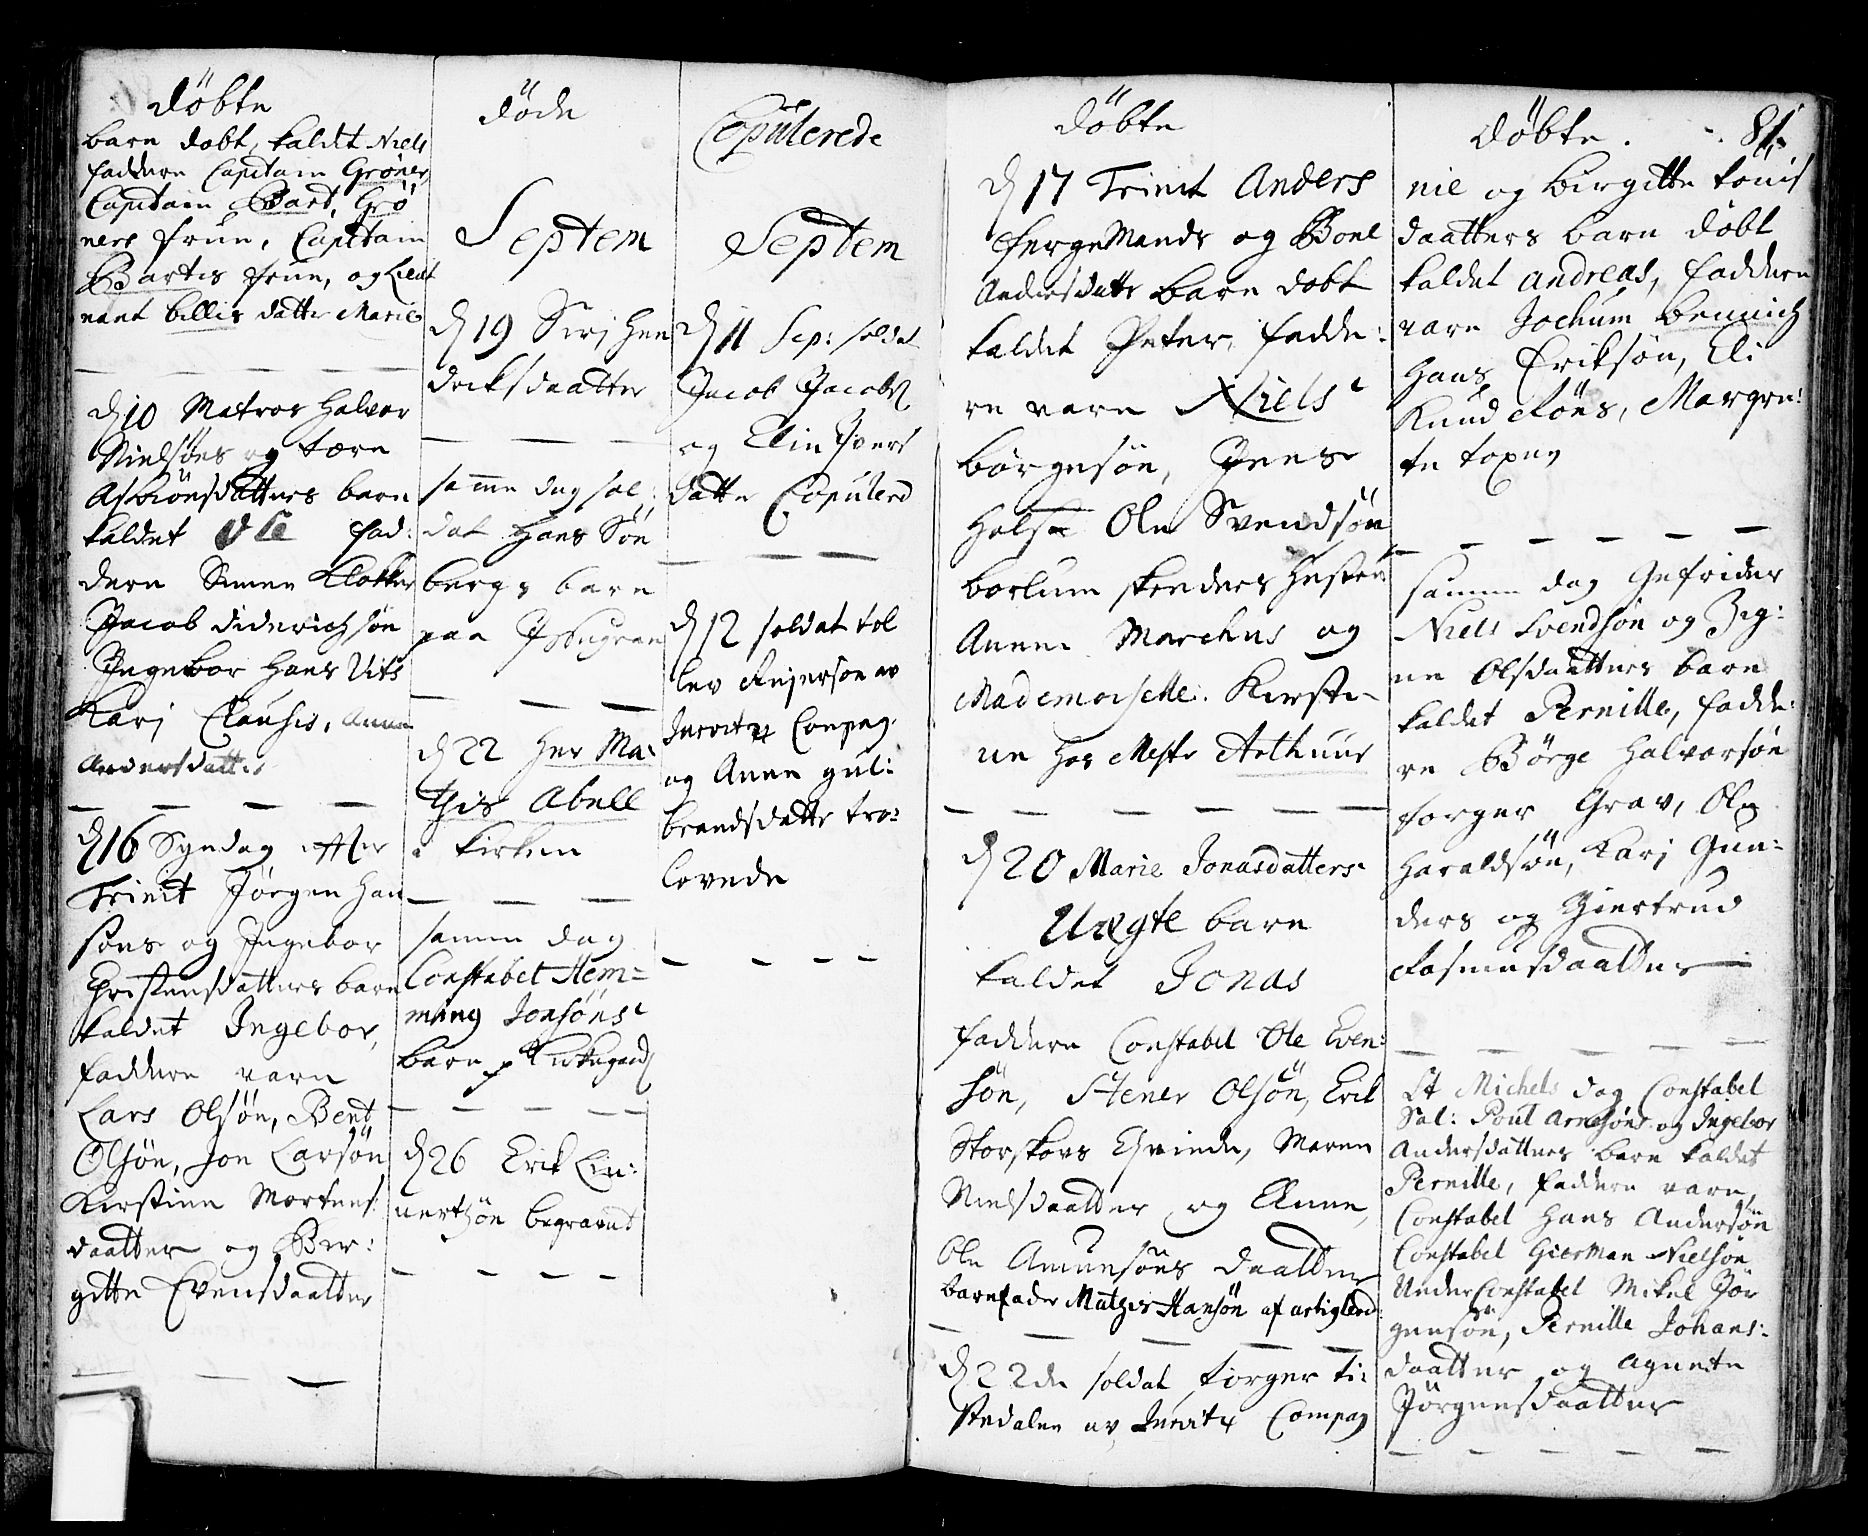 döbte
barn døbt, kaldet Niels
faddere Capitain Gröner,
Capitain Bart, Grö
ners frue, Capitain
Bartes frue, og Lieut
nant billes datter Marie
d 10 Matros Halvor
Nielsöns og
Asbiönsdatters barn
kaldet Ole fad:
dere Simen Klokker
Jacob Diderichsøn
Ingebor Hans Nits
Karj Clauses, Anne
Andersdatter
d 16 Syndag effter
Trinit Jörgen Han
søns og Ingebor
Christensdatters barn
kaldet Ingebor,
faddere varn
Lars Olsön, Bent
Olsön, Jon Larsön
Kirstine Mortens:
daatter og Bir:
gitte Evensdaatter
döde
Septem
d 19 Sirj Hen
dricksdaatter
samme dag sol:
dat Hans Sön
bergs barn
paa
d 22 Her Ma:
this Abell
i kirken
samme dag
Constabel Hem=
ming Jonsöns
barn p Kirkegaard
d 26 Erik Ein:
nertsön begravet
Copulerede
Septem
d 11 Sep: soldat
Jacob Jacobs
og Elin Ivers
datter Copulerd
d 12 soldat tol
lev Reiersøn av
Compag.
og Anne gul:
brandsdatter tro:
lovede
döbte
d 17 Trinit Anders
fergeMands og Boel
Andersdatter barn døbt
kaldet Peter, fadde:
re varn Niels
börgesön, Jens
Holst Ole Svendsön
borlum
Anne Marckus og
Mademoiselle Kirsti-
ne hos Mestr Arthuur
d 20 Marie Jonasdatters
Uægte barn
kaldet Jonas
faddere Constabel Ole Even:
sön, Stener Olsön, Erik
Storskovs Qvinde, Maren
Nielsdaatter og Anne,
Ole Amunsöns daatter
barnefader Mathis Hansön af artiglerd
d 22de soldat torger ti:
stedalen av Compag
döbte. 81.
nie og birgitte tönis
daatters barn döbt
kaldet Andreas, faddere
varn Jochum bennich
Hans Eriksön, Eli
Knud Röns, Margre:
te
samme dag Gefrider
Niels Svendsön og Sig:
ne Olsdaatters barn
kaldet Pernille, fadde:
re Börge Halvorsön
torger Grav, Ole
Haraldsön, Karj Gun:
ders og Giertrud
Rasmusdaatter
St Michels dag Constabel
Sal: Poul Arnesöns og Ingebor
Andersdatters barn kaldet
Pernille, faddere varn,
Constabel Hans Andersön
Constabel Gierman Nielsön
UnderConstabel Mikel Jör
gensön, Pernille Johans:
daatter og Agnete
Jörgensdaatter